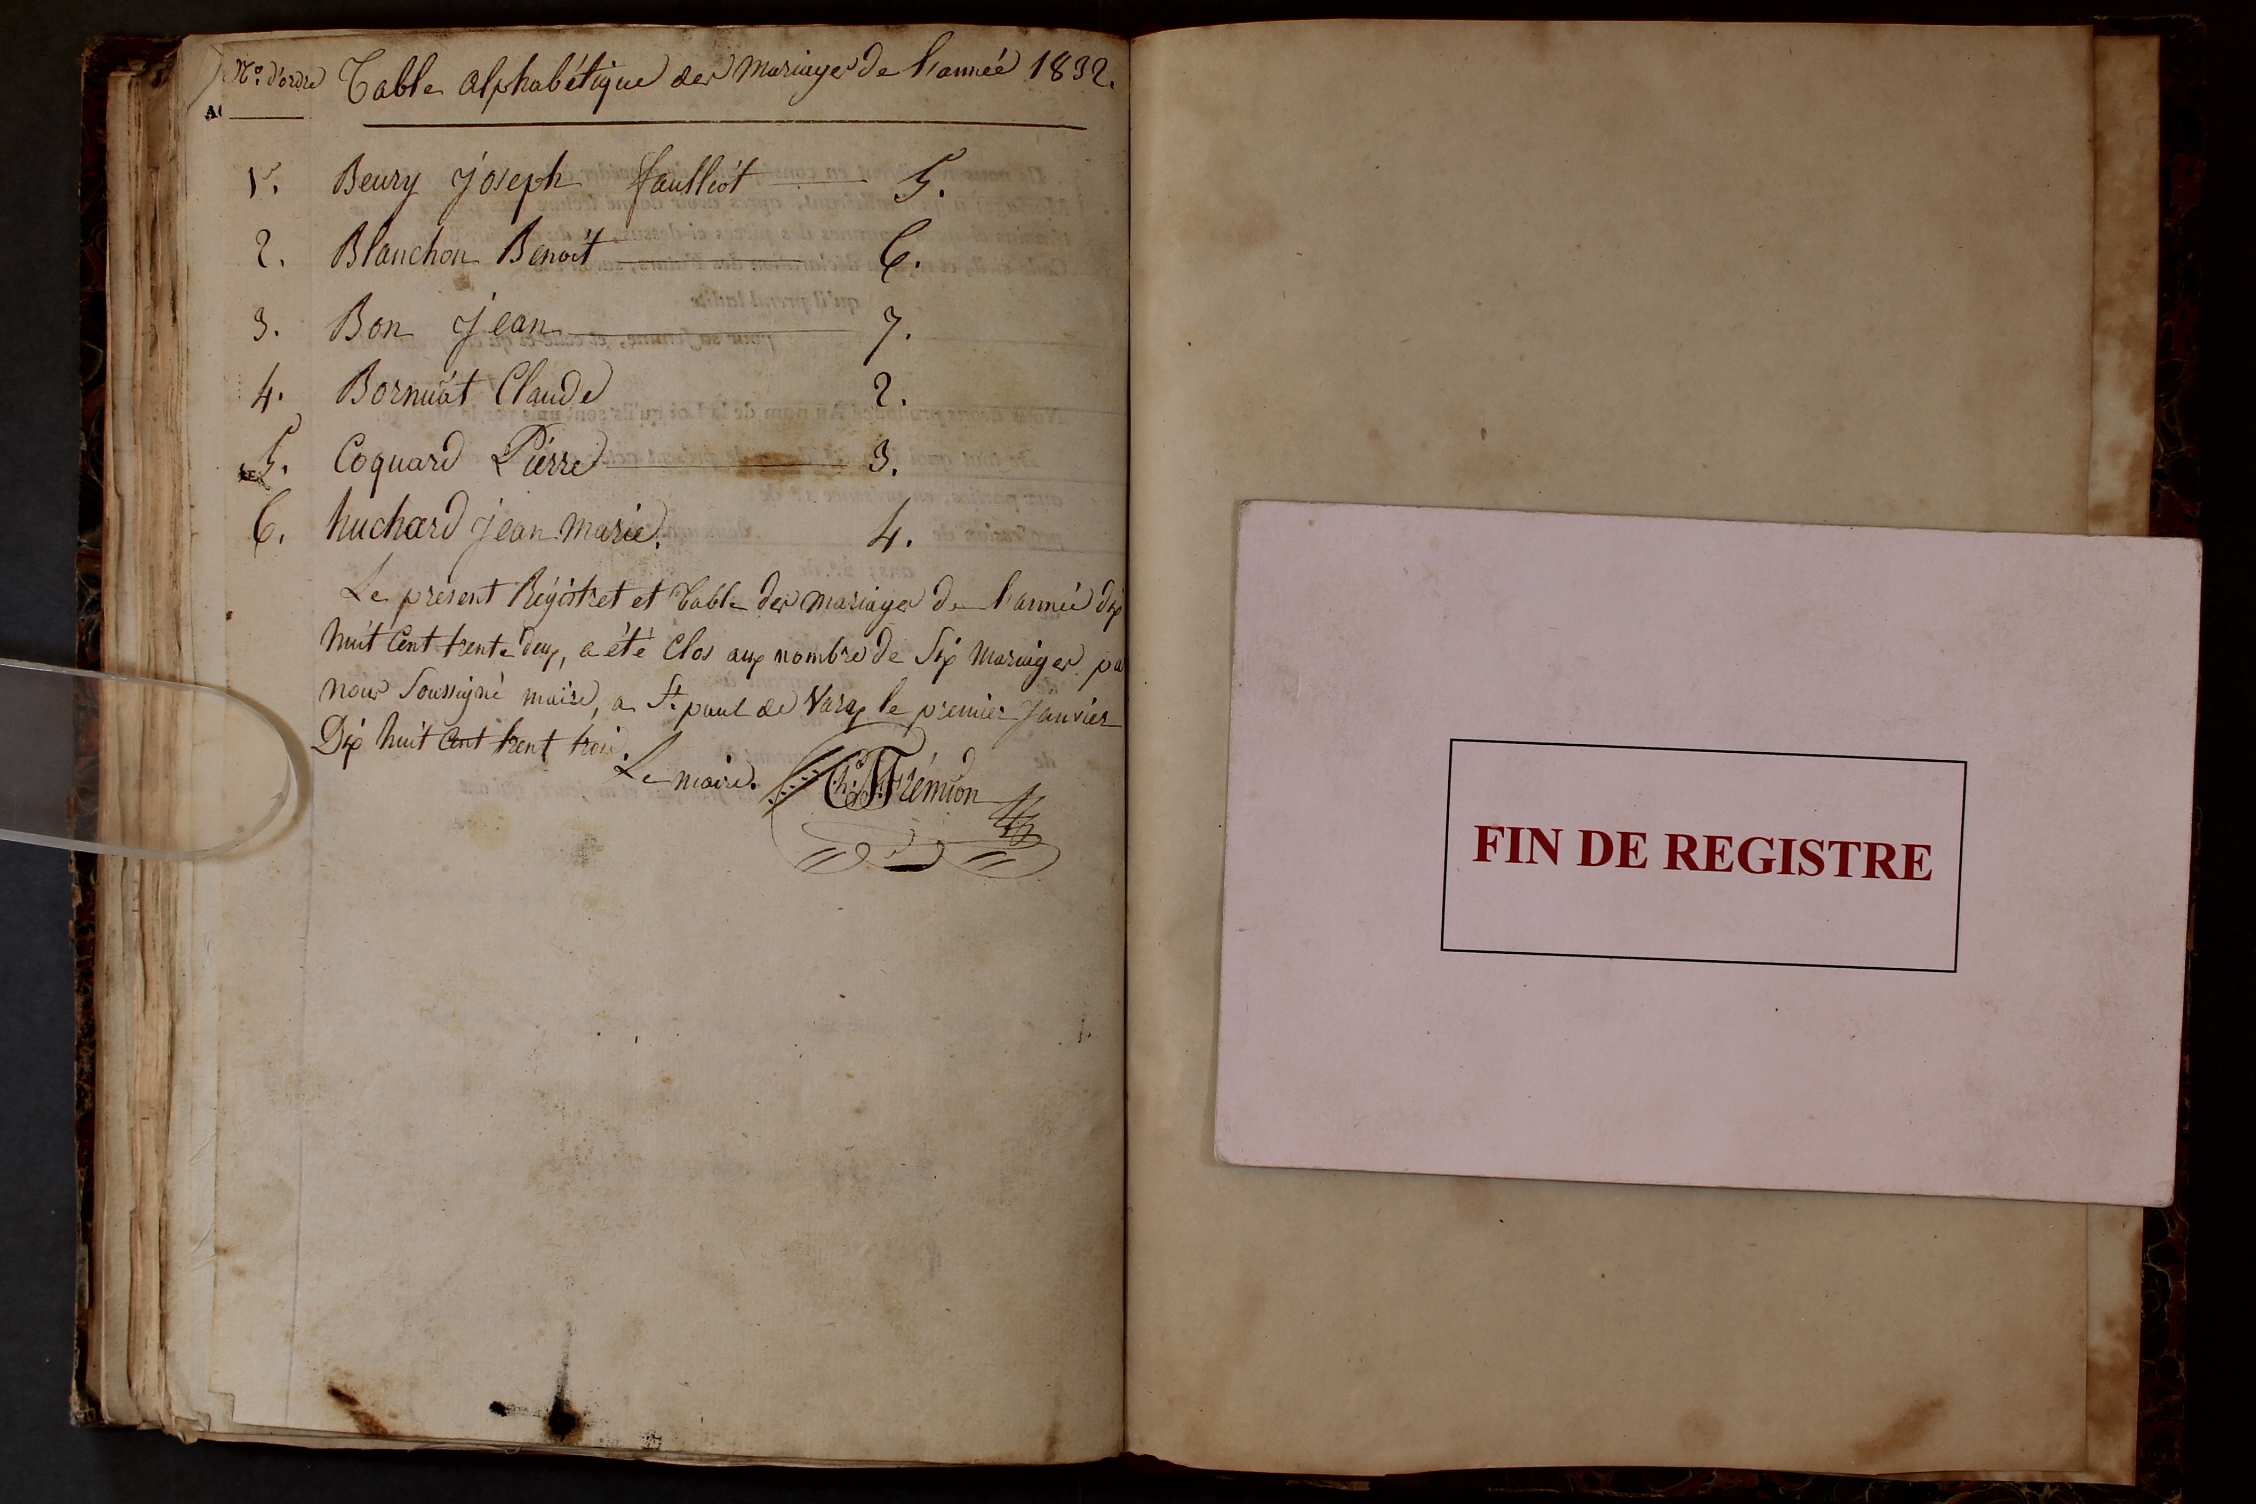 No. d'ordre Table alphabétique des mariages de l'année 1832.
1er. Beury Joseph 5.
2. Blanchon Benoit 6.
3. Bon Jean 7.
4. Bornuat Claude 2.
5. Coquard Pierre 3.
6. huchard Jean Marie. 4.
Le présent Régistret et Table des mariages de l'année dix
huit Cent trente deux, a été Clos aux nombre de Six Mariages pa
nous Soussigné maire, a St. paul de Varax le premier Janvier
Dix huit Cent trent trois.
Le maire. Frémion
FIN DE REGISTRE